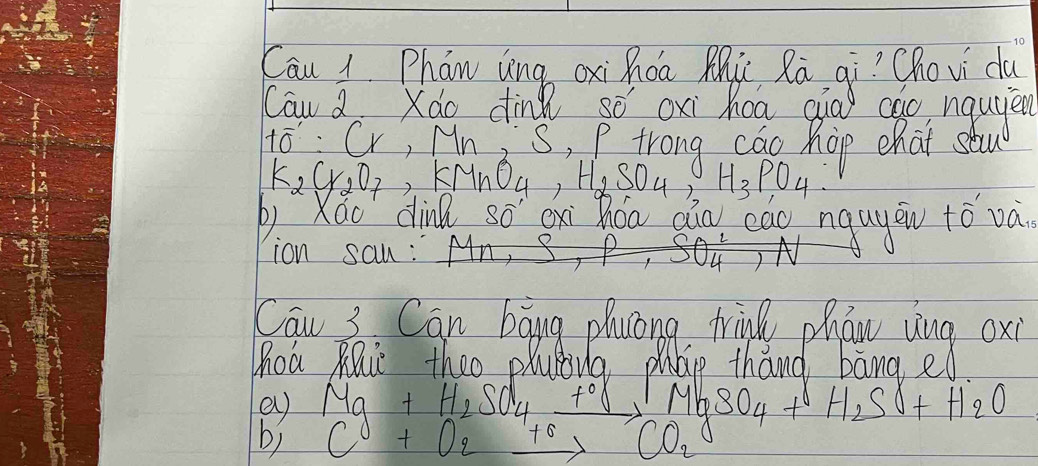 10
Câu 1. Phản ứng oxi hóa khử là gì? Cho ví dụ
Câu 2. Xác định số oxi hóa của các nguyên
tố: Cr, Mn, S, P trong các hợp chất sau
K₂Cr₂O₇, KMnO₄, H₂SO₄, H₃PO₄.
b) Xác định số oxi hóa của các nguyên tố và
15
ion sau: Mn, S, P, SO₄²⁻, N
Câu 3. Cân bằng phương trình phản ứng oxi
hoá khử theo phương pháp thăng bằng e.
a) Mg + H₂SO₄ →t° MgSO₄ + H₂S + H₂O
b) C + O₂ →t° CO₂